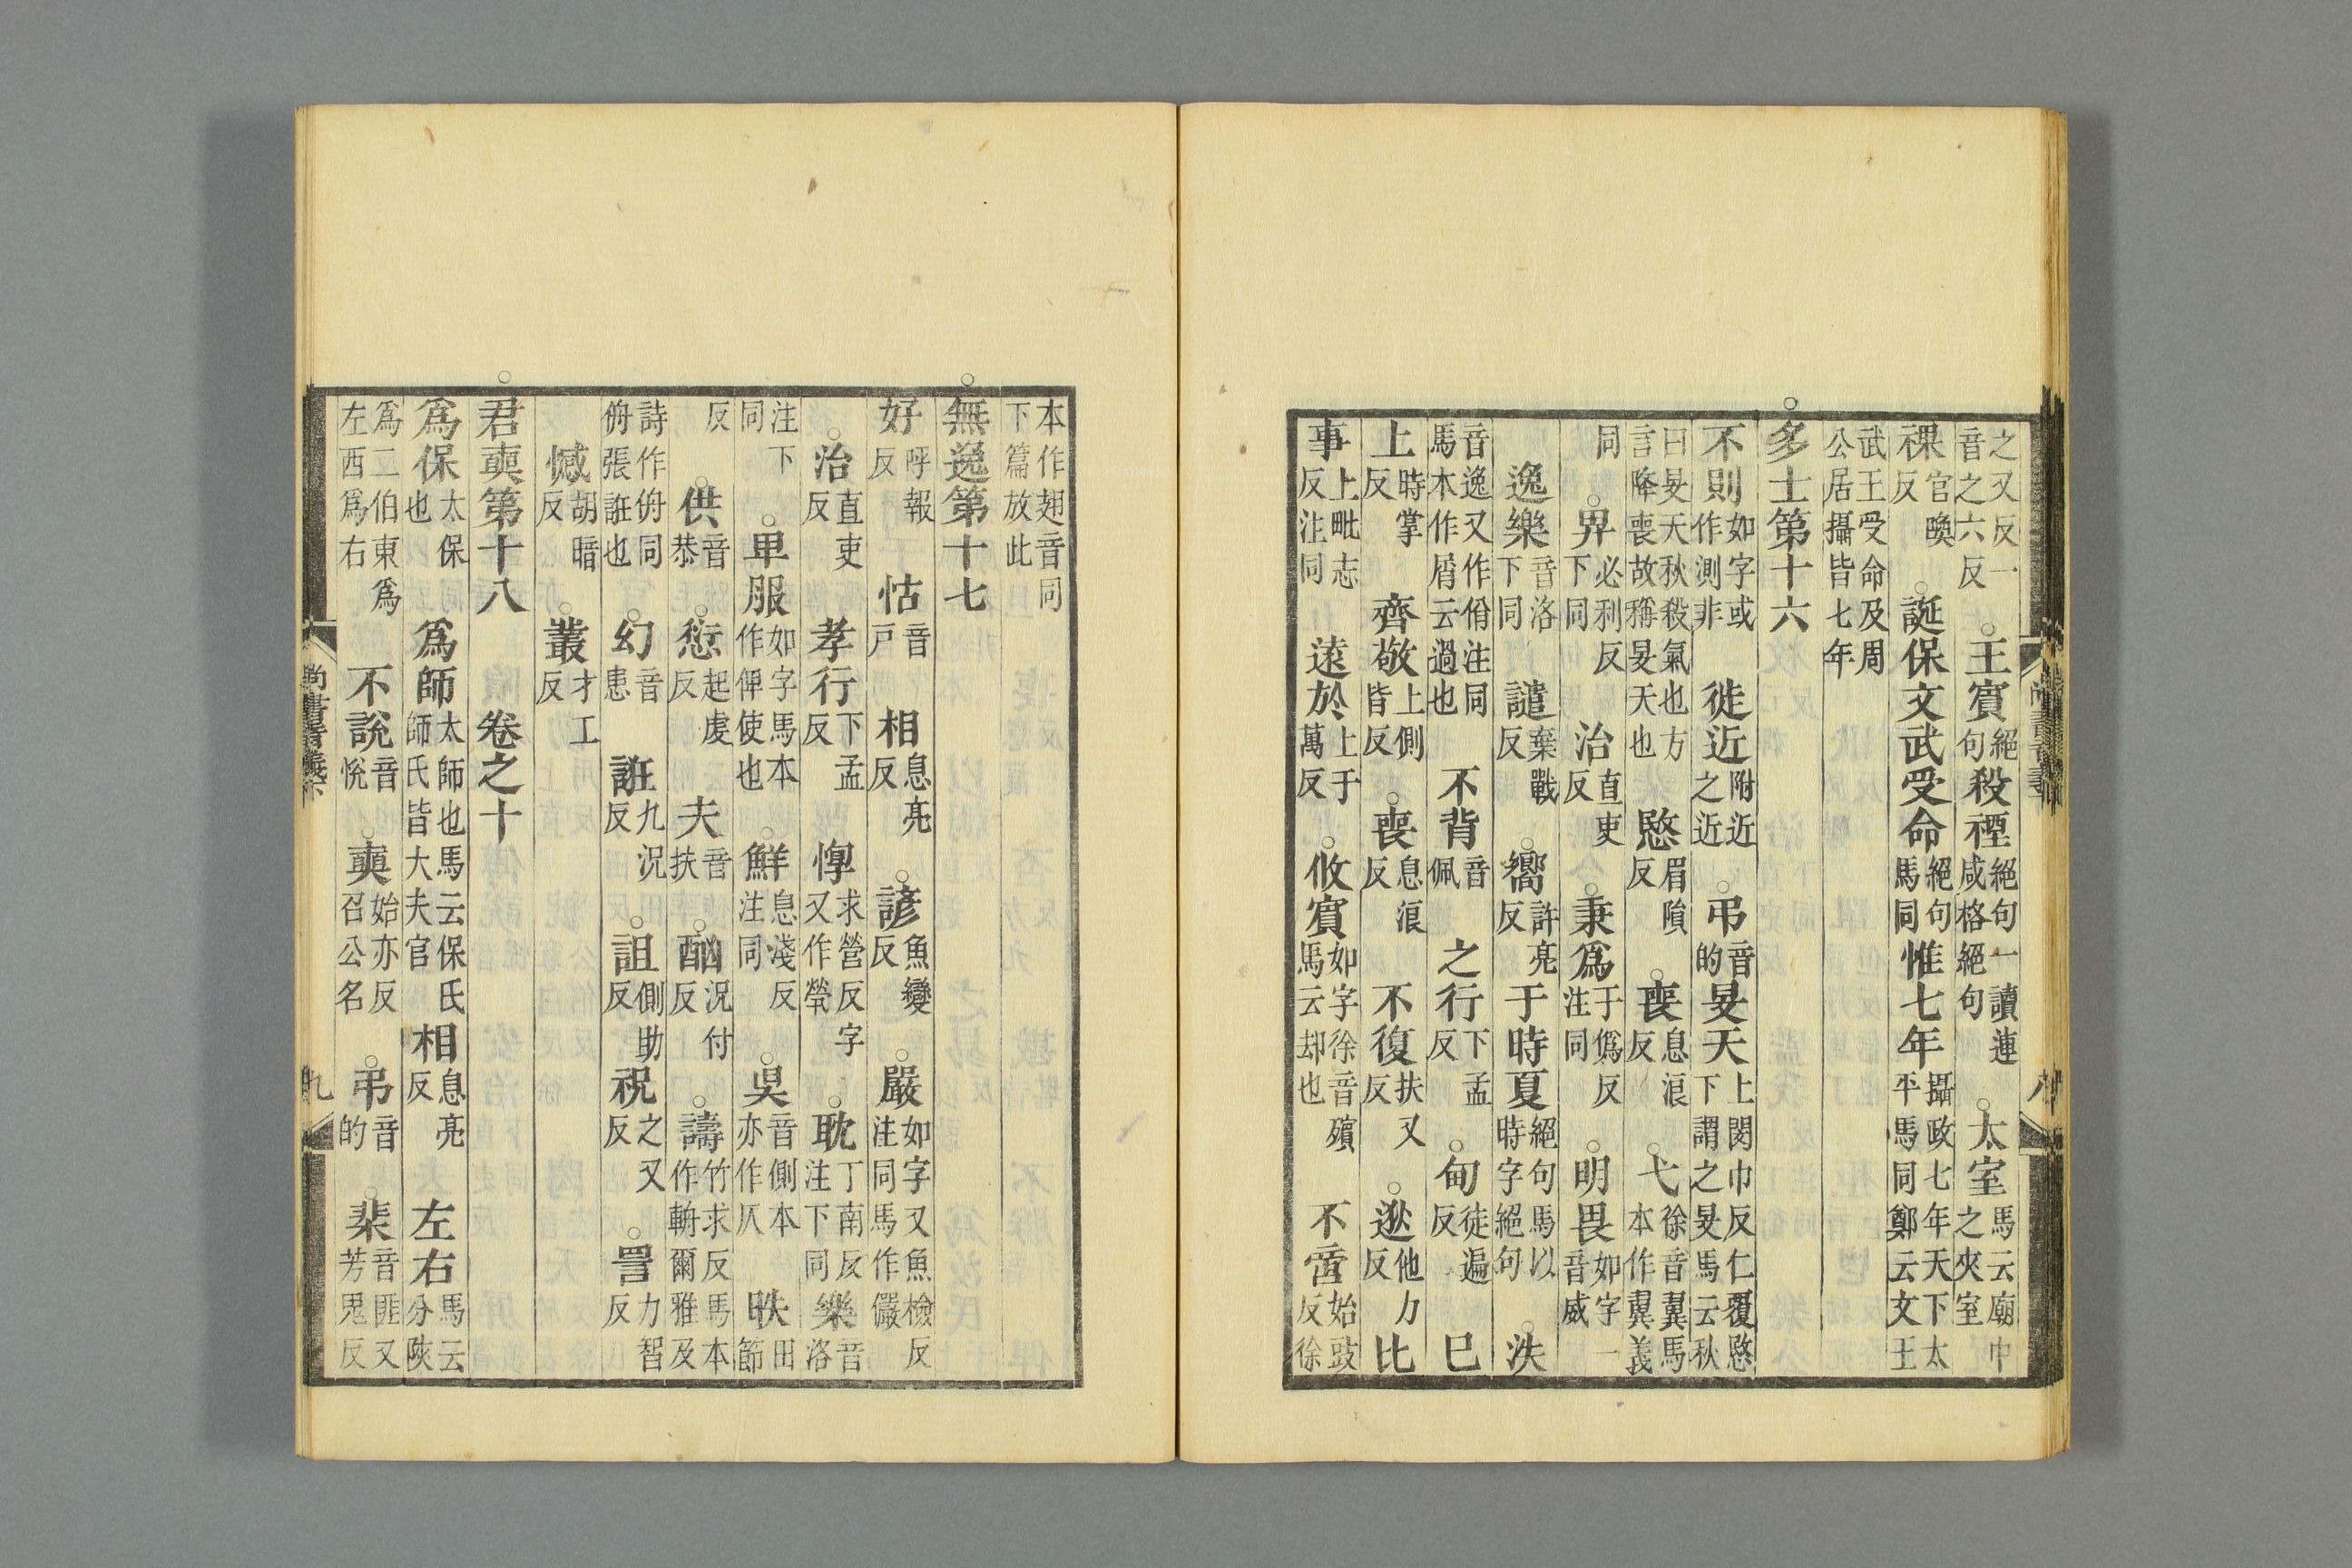 之又反一音之六反○王賓絕句殺禋絕句一讀連咸格絕句○太室馬云廟中之夾室
祼官喚反○誕保文武受命絕句馬同惟七年攝政七年天下太平馬同鄭云文王
武王受命及周公居攝皆七年
○多士第十六
不則如字或作測非 徙近附近之近○弔音的旻天上閔巾反仁覆愍下謂之旻馬云秋
曰旻天秋殺氣也方言降喪故稱旻天也 愍眉隕反○喪息浪反○弋徐音翼馬本作翼義
同○畀必利反下同 治直吏反○秉爲于僞反注同○明畏如字一音威
逸樂音洛下同 譴棄戰反○嚮許亮反于時夏絕句馬以時字絕句○泆
音逸又作佾注同馬本作屑云過也 不背音佩 之行下孟反○甸徒遍反 巳
上時掌反 齊敬上側皆反○喪息浪反 不復扶又反○逖他力反 比
事上毗志反注同 遠於上于萬反○攸賓如字徐音殯馬云却也 不啻始豉反徐
尚書音義 八
本作翅音同下篇放此
○無逸第十七
好呼報反 怙音戶 相息亮反○諺魚變反○嚴如字又魚檢反注同馬作儼
○治直吏反 孝行下孟反 惸求營反字又作煢○耽丁南反注下同樂音洛
注下同○卑服如字馬本作俾使也○鮮息淺反注同○昃音側本亦作仄 昳田節
反○供音恭○愆起虔反 夫音扶○酗況付反○譸竹求反馬本作輈爾雅及
詩作侜同侜張誑也○幻音患 誑九況反○詛側助反 祝之又反○詈力智反
憾胡暗反○叢才工反
○君奭第十八 卷之十
爲保太保也 爲師太師也馬云保氏師氏皆大夫官 相息亮反 左右馬云分陝
爲二伯東爲左西爲右 不說音悅○奭始亦反召公名○弔音的○棐音匪又芳鬼反
尚書音義下 九